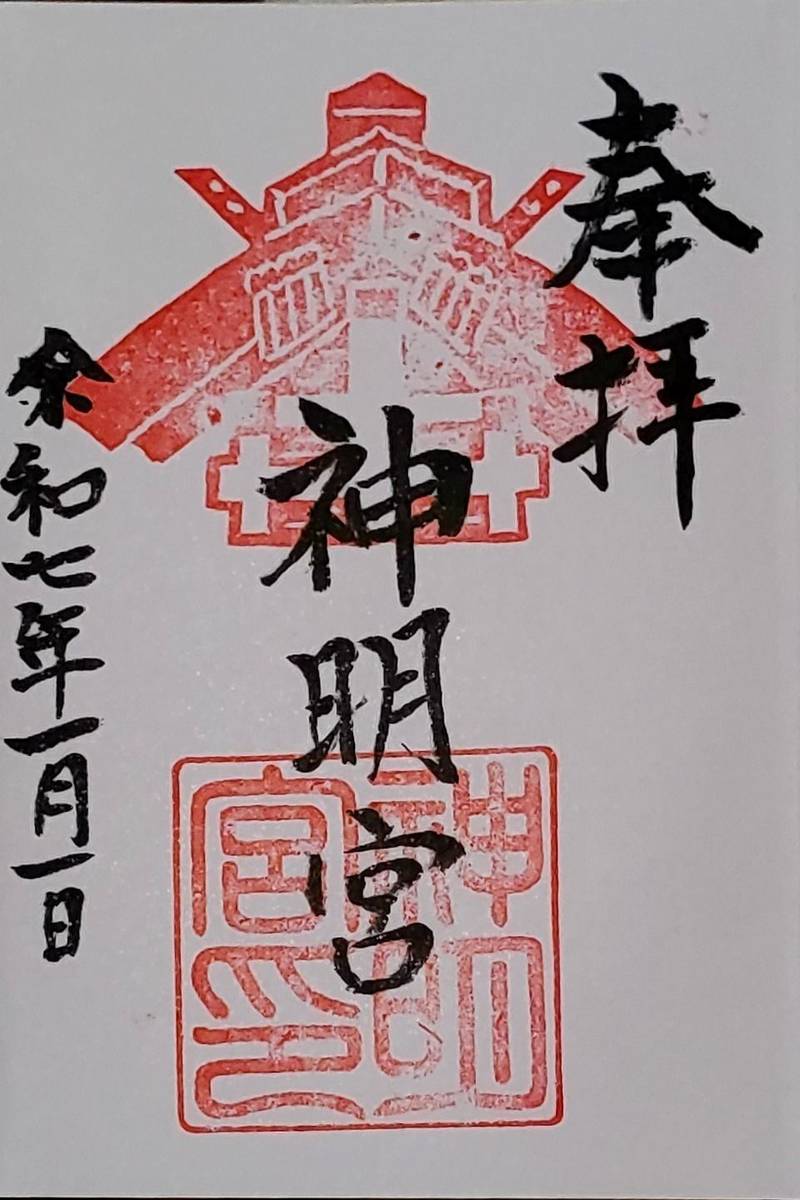 奉拝
神明宮
神明宮印
令和七年一月一日